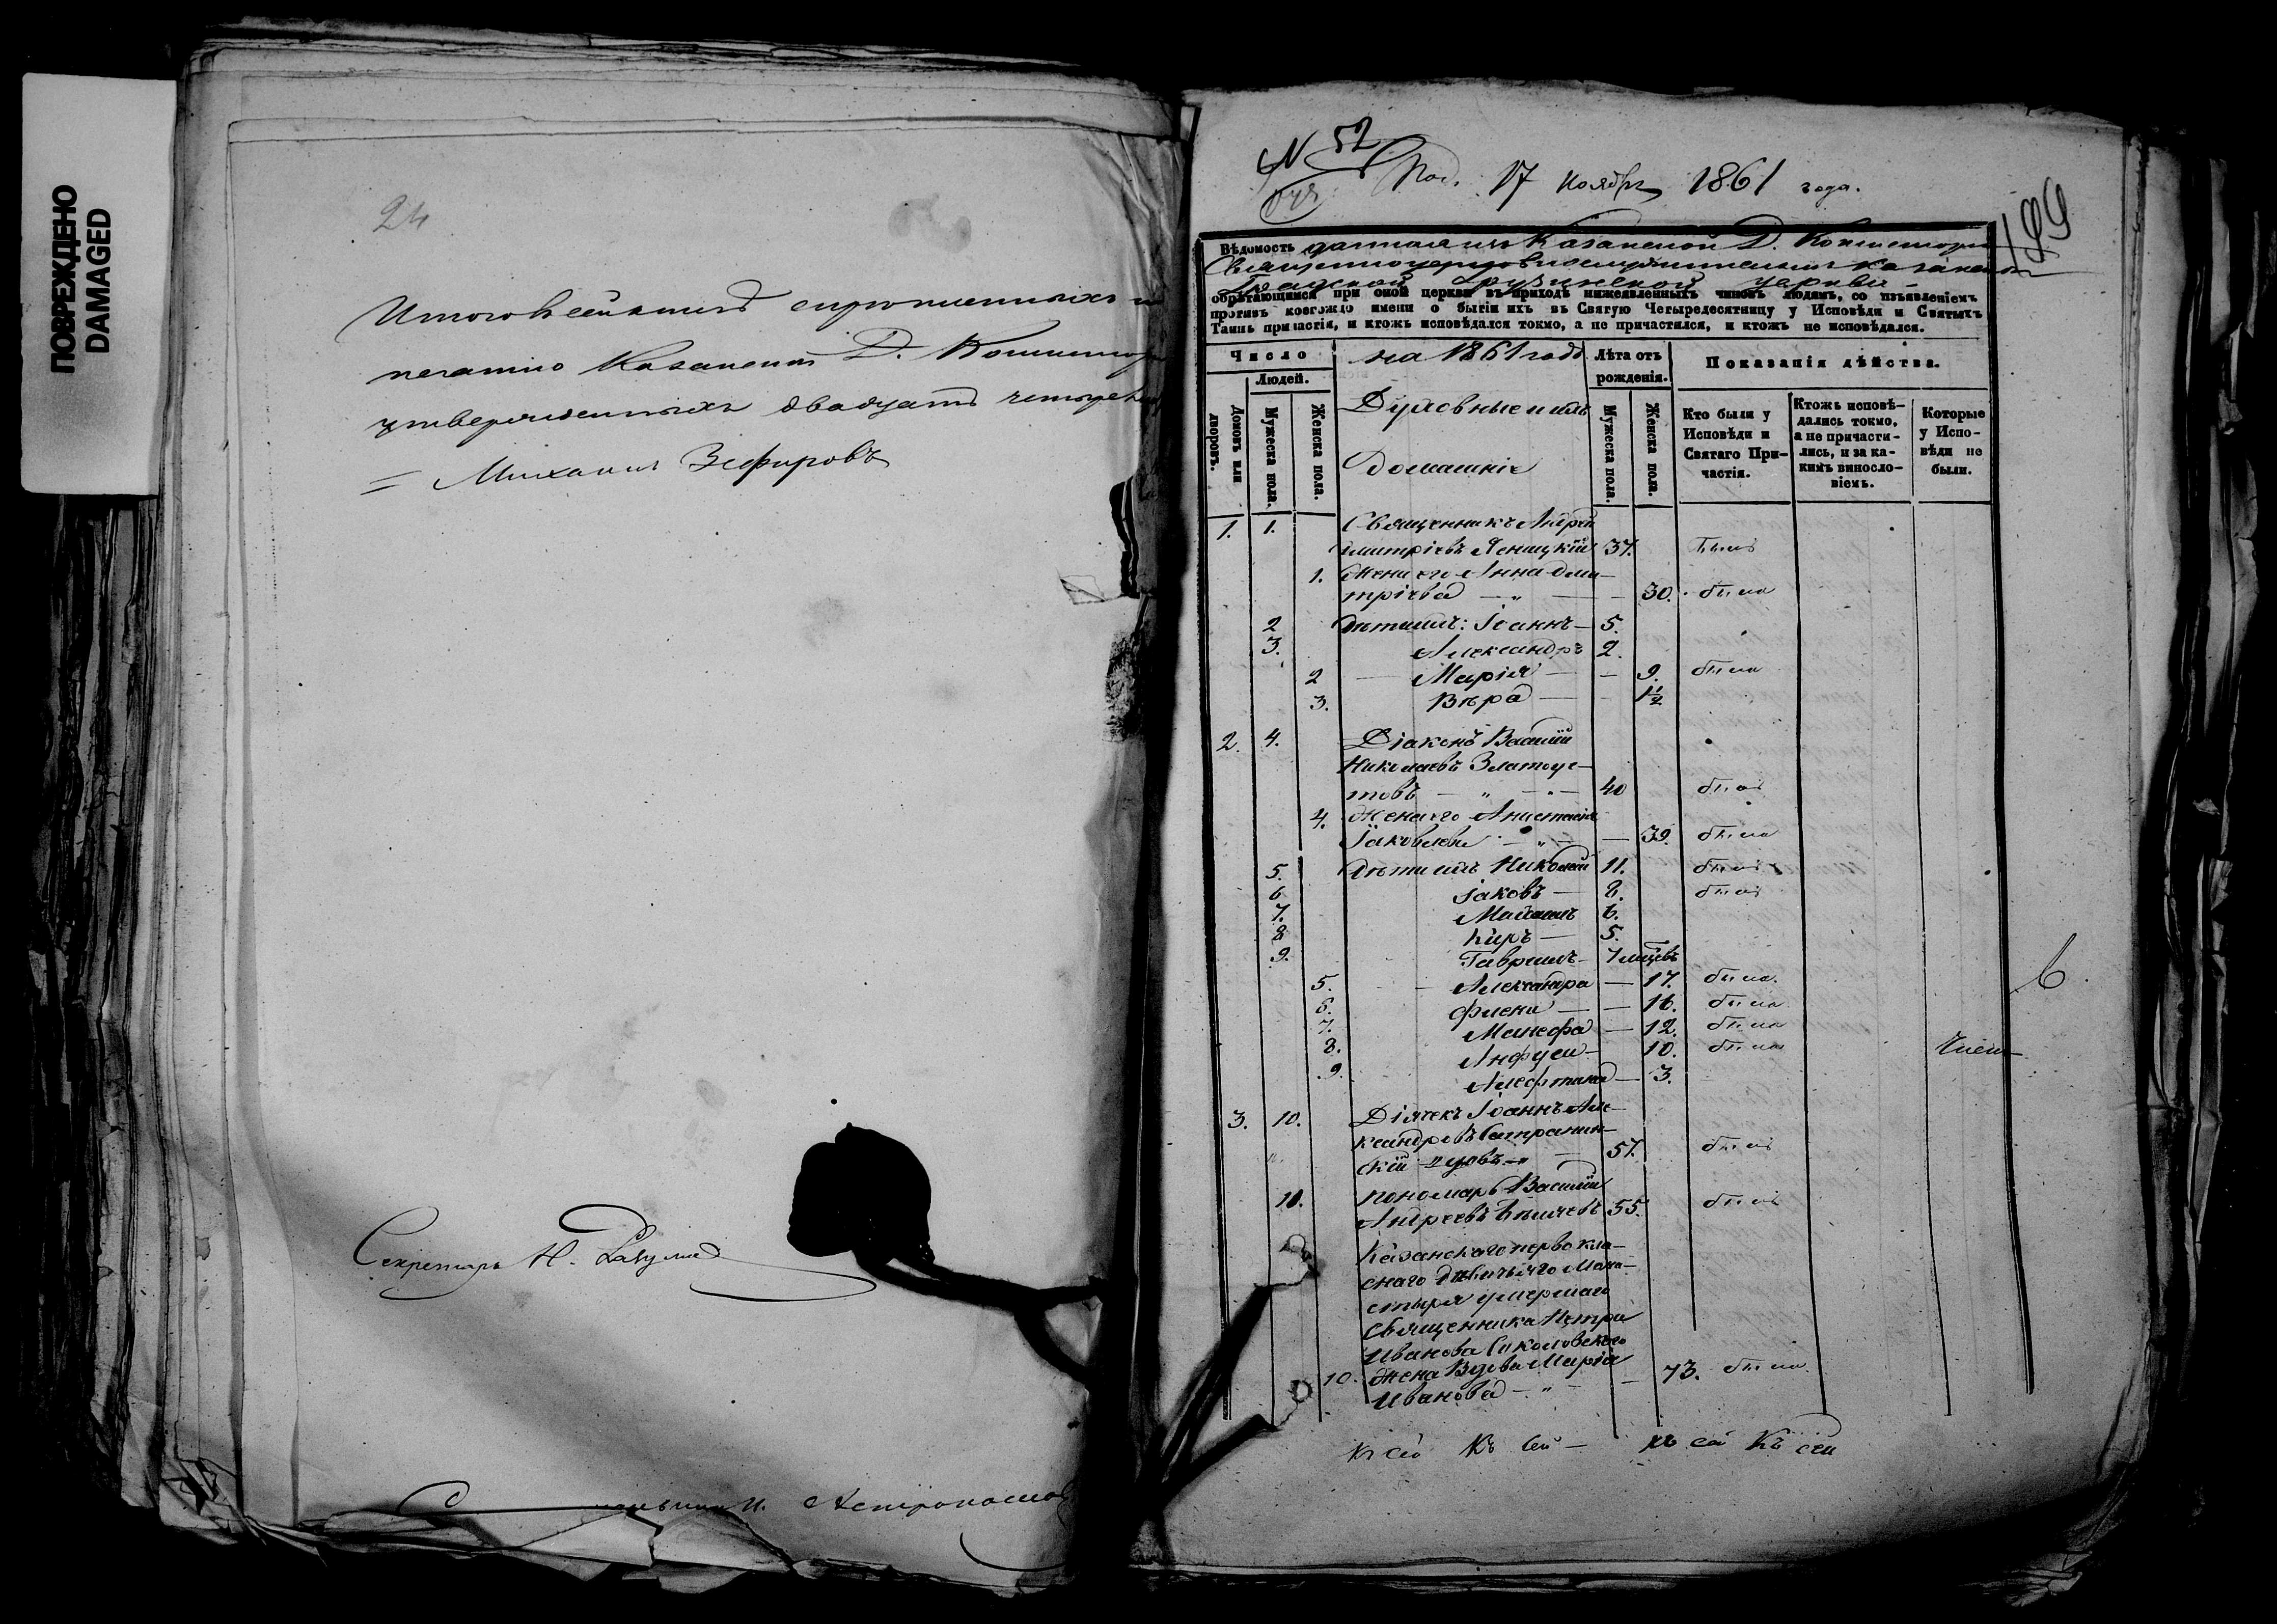 ПОВРЕЖДЕНО
DAMAGED
24
Итого въ сей книгѣ скрѣпленныхъ и
печатью Казанской Д. Консистор
утвержденныхъ двадцать четыре
Михаилъ Зефировъ
Секретарь Н.
N 52
Под. 17 ноября 1861 года.
199
Вѣдомость данная изъ Казанской Д. Консисторіи
Священноцерковнослужителямъ Казанской
Градской Грузинской церкви
обрѣтающимся при оной церкви въ приходѣ нижеявленныхъ чиновъ людямъ, со изъявленіемъ
противъ коегождо имени о бытіи ихъ въ Святую Четыредесятницу у Исповѣди и Святыхъ
Таинъ причастія, и ктожъ исповѣдался токмо, а не причастился, и ктожъ не исповѣдался.
Число
Людей.
Домовъ или дворовъ.
Мужеска пола.
Женска пола.
на 1861 годъ
Духовные и ихъ
домашніе
Лѣта отъ рожденія.
Мужеска пола.
Женска пола.
Показанія дѣйства.
Кто были у Исповѣди и Святаго Причастія.
Ктожъ исповѣдались токмо, а не причастились, и за какимъ винословіемъ.
Которые у Исповѣди не были.
1. 1. Священникъ Андрей
Дмитріевъ Ясницкій 37. былъ
1. Жена его Анна Дми-
тріева — „ — 30. была
2 Дѣти ихъ: Іоаннъ — 5.
3. Александръ 2.
2 Марія — 9. была
3. Вѣра — 1½
2. 4. Діаконъ Василій
Николаевъ Златоус-
товъ — „ — 40 былъ
4. Жена его Анастасія
Іаковлева — „ — 39. была
5. Дѣти ихъ Николай 11. былъ
6 Іаковъ — 8. былъ
7. Михаилъ 6.
8 Киръ — 5.
9. Гавріилъ — 7 мѣсяцевъ
5. Александра — 17. была
6. Фаена — 16. была
7. Манефа — 12. была
8. Анфуса — 10. была
9. Алефтина — 3.
3. 10. Дьячекъ Іоаннъ Але-
ксандровъ
скій вдовъ — „ — 57. былъ
11. Пономарь Василій
Андреевъ 55. былъ
Казанскаго первокла-
снаго дѣвичьяго Мона-
стыря умершаго
Священника Петра
Иванова Соколовскаго
10. Жена Вдова Марія
Иванова — „ — 73. была
6
Член-
Къ сей Къ сей — Къ сей Къ сей